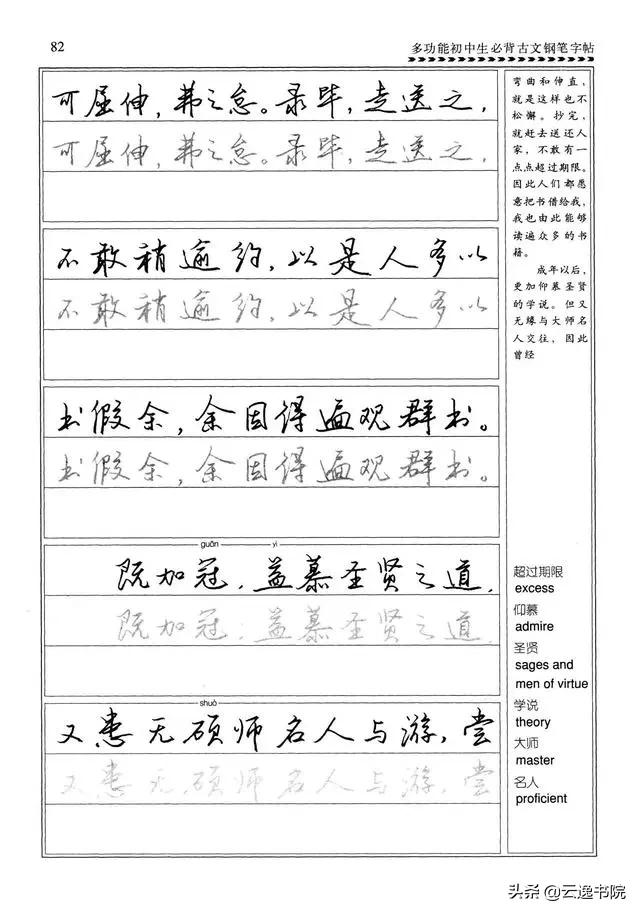 82
多功能初中生必背古文钢笔字帖
可屈伸，弗之怠。录毕，走送之，
可屈伸，弗之怠。录毕，走送之，
不敢稍逾约，以是人多以
不敢稍逾约，以是人多以
书假余，余因得遍观群书。
书假余，余因得遍观群书。
guān yì
既加冠，益慕圣贤之道，
既加冠，益慕圣贤之道，
shuò
又患无硕师名人与游，尝
又患无硕师名人与游，尝
弯曲和伸直，
就是这样也不
松懈。抄完，
就赶去送还人
家，不敢有一
点点超过期限。
因此人们都愿
意把书借给我，
我也由此能够
读遍众多的书
籍。
成年以后，
更加仰慕圣贤
的学说。但又
无缘与大师名
人交往，因此
曾经
超过期限
excess
仰慕
admire
圣贤
sages and
men of virtue
学说
theory
大师
master
名人
proficient
头条@云逸书院